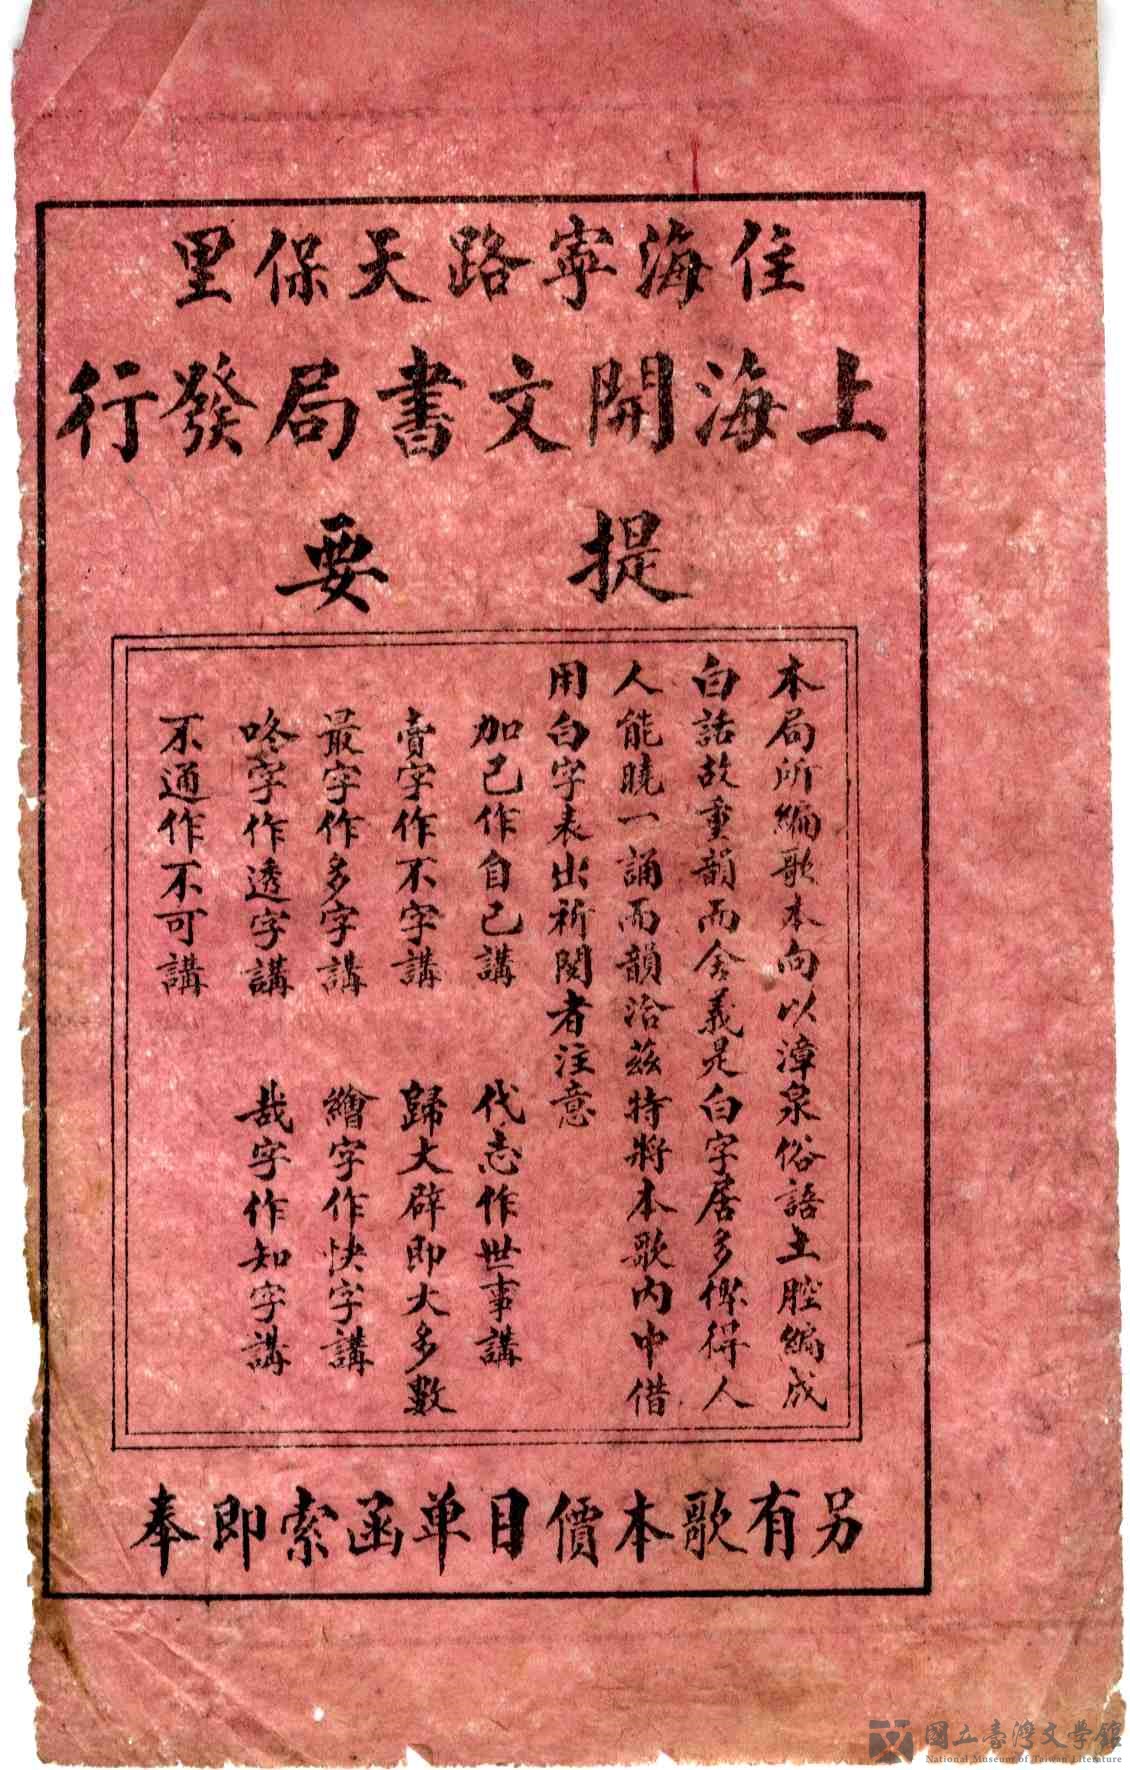 住海寧路天保里
上海開文書局發行
提要
本局所編歌本向以漳泉俗語土腔編成
白話故重韻而舍義是白字居多俾得人
人能曉一誦而韻洽茲特將本歌內中借
用白字表出祈閱者注意
加己作自己講 代志作世事講
賣字作不字講 歸大辟即大多數
最字作多字講 繪字作快字講
咚字作透字講 哉字作知字講
不通作不可講
另有歌本價目单函索即奉
國立臺灣文學館
National Museum of Taiwan Literature